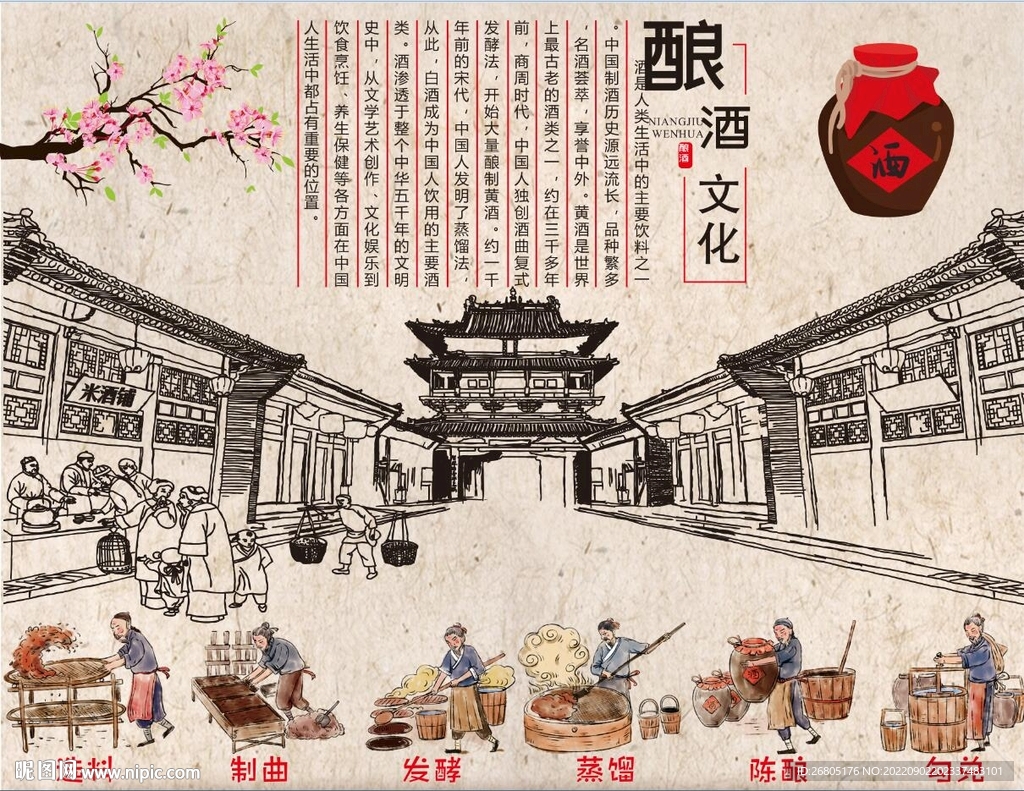 酿
酒
文
化
NIANGJIU
WENHUA
酿酒
酒是人类生活中的主要饮料之一
。中国制酒历史源远流长，品种繁多
，名酒荟萃，享誉中外。黄酒是世界
上最古老的酒类之一，约在三千多年
前，商周时代，中国人独创酒曲复式
发酵法，开始大量酿制黄酒。约一千
年前的宋代，中国人发明了蒸馏法，
从此，白酒成为中国人饮用的主要酒
类。酒渗透于整个中华五千年的文明
史中，从文学艺术创作、文化娱乐到
饮食烹饪、养生保健等各方面在中国
人生活中都占有重要的位置。
酒
米酒铺
选料
制曲
发酵
蒸馏
陈酿
勾兑
昵图网 www.nipic.com
ID:26805176 NO:20220902202337483101